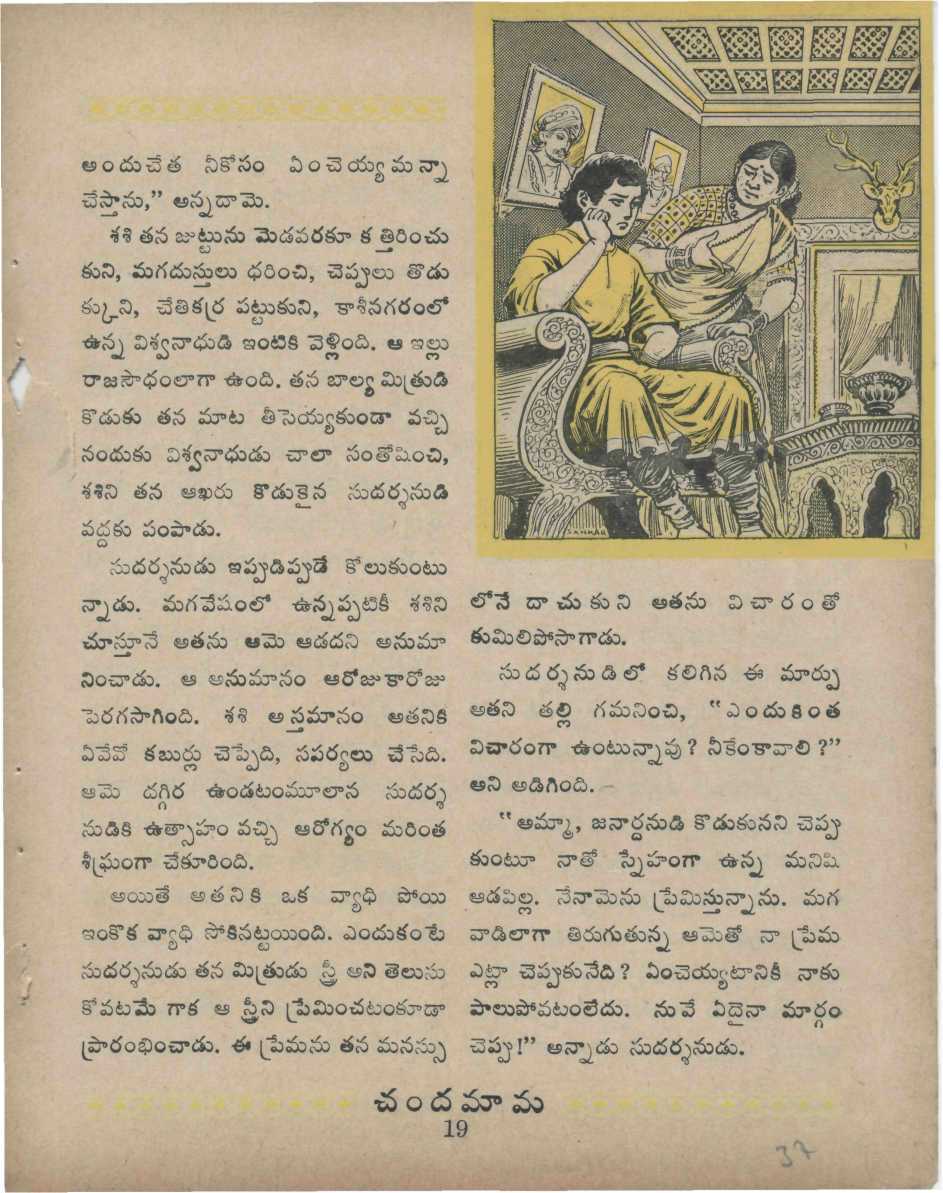 అందుచేత నీకోసం ఏంచెయ్యమన్నా
చేస్తాను,” అన్నదామె.
శశి తన జుట్టును మెడవరకూ కత్తిరించు
కుని, మగదుస్తులు ధరించి, చెప్పులు తొడు
క్కుని, చేతికర్ర పట్టుకుని, కాశీనగరంలో
ఉన్న విశ్వనాథుడి ఇంటికి వెళ్లింది. ఆ ఇల్లు
రాజసౌధంలాగా ఉంది. తన బాల్య మిత్రుడి
కొడుకు తన మాట తీసెయ్యకుండా వచ్చి
నందుకు విశ్వనాధుడు చాలా సంతోషించి,
శశిని తన ఆఖరు కొడుకైన సుదర్శనుడి
వద్దకు పంపాడు.
సుదర్శనుడు ఇప్పుడిప్పుడే కోలుకుంటు
న్నాడు. మగవేషంలో ఉన్నప్పటికీ శశిని
చూస్తూనే అతను ఆమె ఆడదని అనుమా
నించాడు. ఆ అనుమానం ఆరోజుకారోజు
పెరగసాగింది. శశి అస్తమానం అతనికి
ఏవేవో కబుర్లు చెప్పేది, సపర్యలు చేసేది.
ఆమె దగ్గిర ఉండటంమూలాన సుదర్శ
నుడికి ఉత్సాహం వచ్చి ఆరోగ్యం మరింత
శీఘ్రంగా చేకూరింది.
అయితే అతనికి ఒక వ్యాధి పోయి
ఇంకొక వ్యాధి సోకినట్టయింది. ఎందుకంటే
సుదర్శనుడు తన మిత్రుడు స్త్రీ అని తెలుసు
కోవటమే గాక ఆ స్త్రీని ప్రేమించటంకూడా
ప్రారంభించాడు. ఈ ప్రేమను తన మనస్సు
SANKAR
లోనే దాచుకుని అతను విచారంతో
కుమిలిపోసాగాడు.
సుదర్శనుడిలో కలిగిన ఈ మార్పు
అతని తల్లి గమనించి, “ఎందుకింత
విచారంగా ఉంటున్నావు? నీకేంకావాలి?”
అని అడిగింది.
“అమ్మా, జనార్దనుడి కొడుకునని చెప్పు
కుంటూ నాతో స్నేహంగా ఉన్న మనిషి
ఆడపిల్ల. నేనామెను ప్రేమిస్తున్నాను. మగ
వాడిలాగా తిరుగుతున్న ఆమెతో నా ప్రేమ
ఎట్లా చెప్పుకునేది? ఏంచెయ్యటానికీ నాకు
పాలుపోవటంలేదు. నువే ఏదైనా మార్గం
చెప్పు!” అన్నాడు సుదర్శనుడు.
చందమామ
19
37